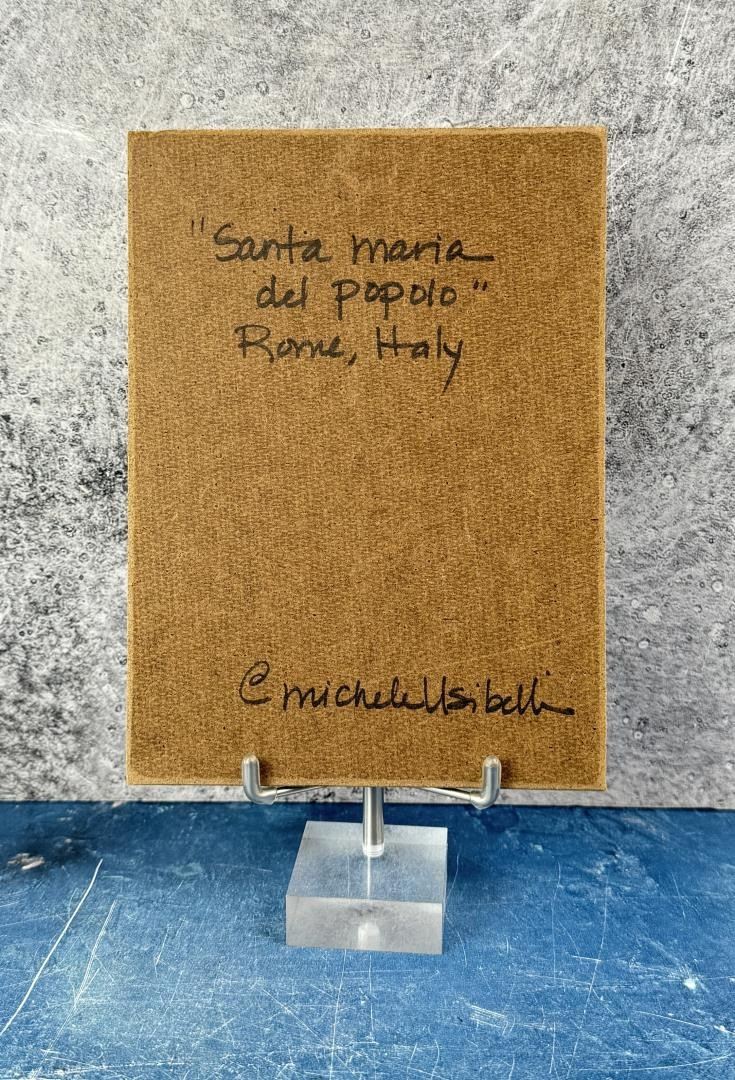 "Santa maria
del popolo"
Rome, Italy
© michele Usibelli